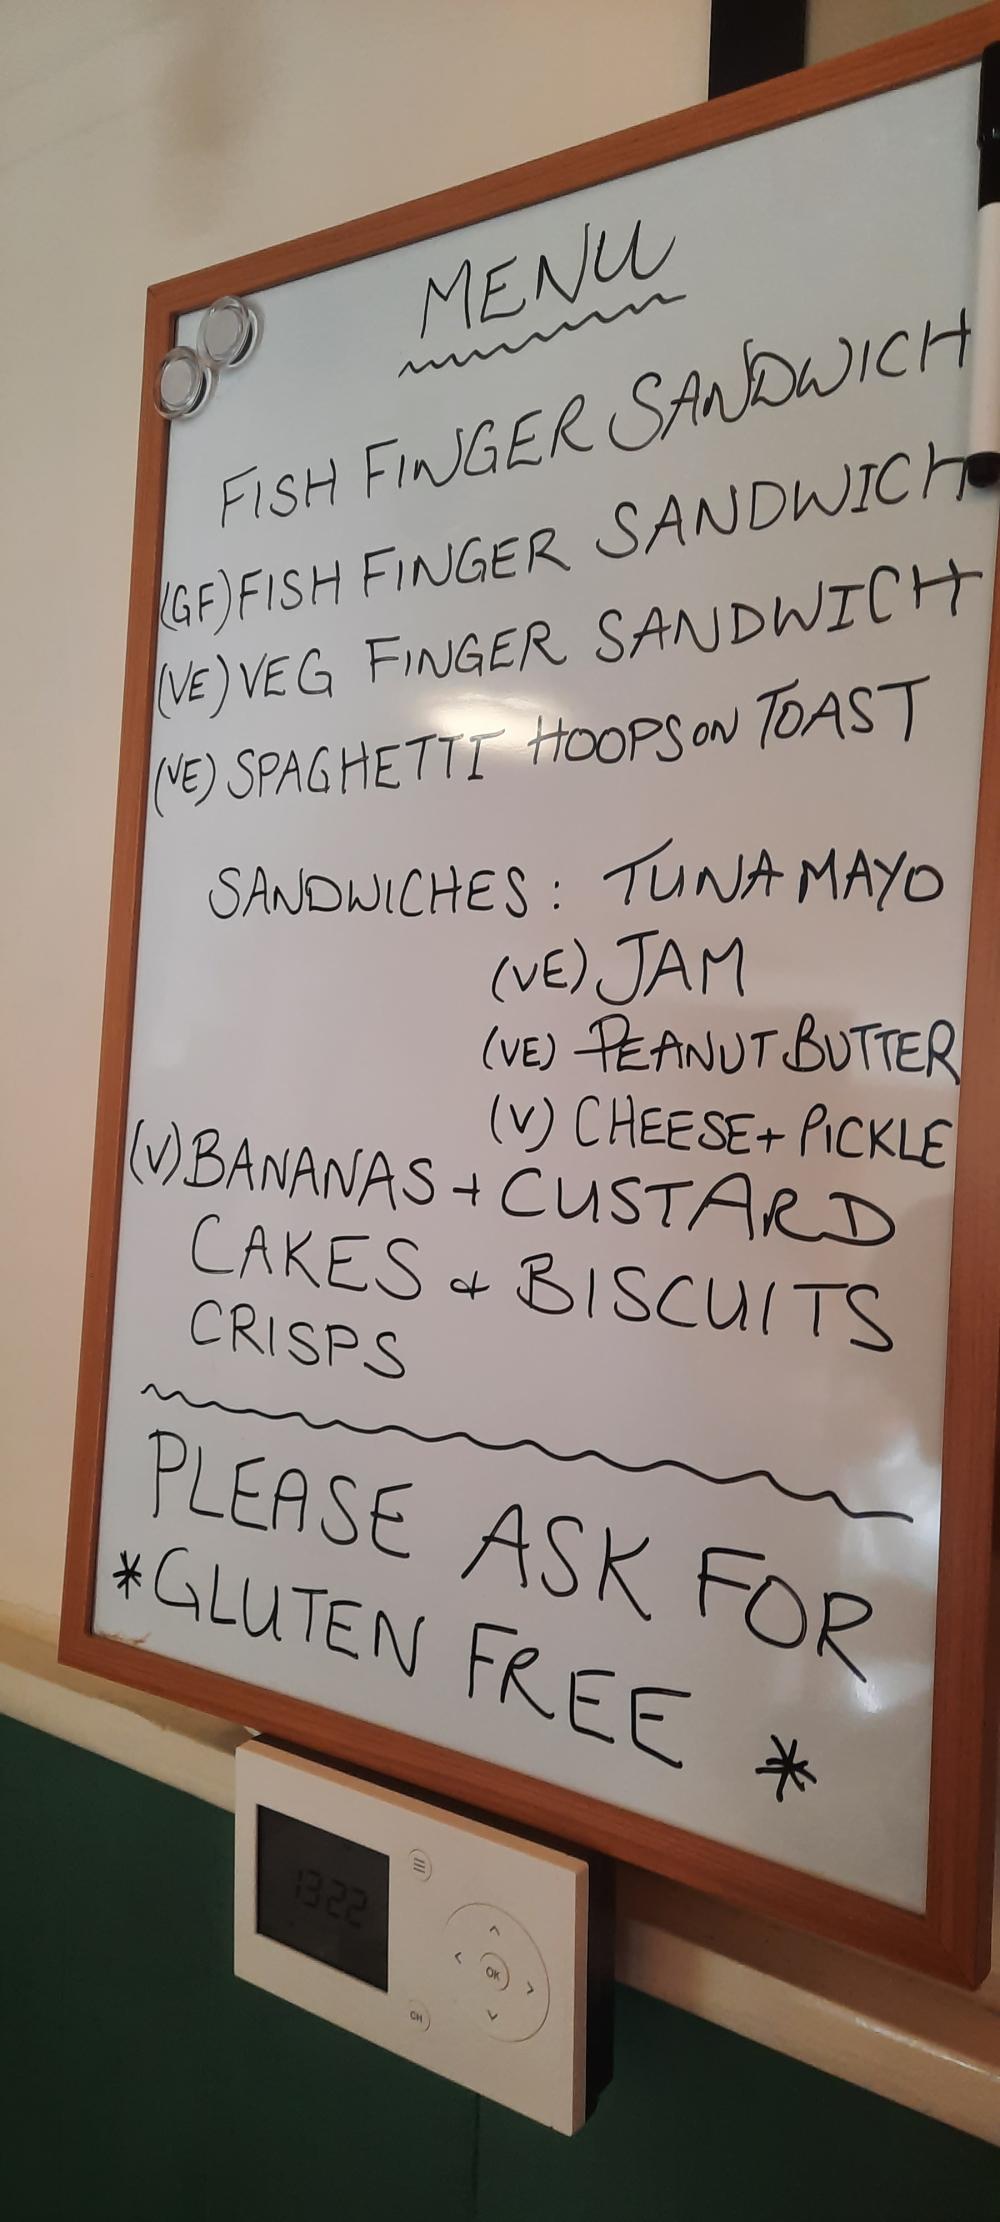 MENU
FISH FINGER SANDWICH
(GF) FISH FINGER SANDWICH
(VE) VEG FINGER SANDWICH
(VE) SPAGHETTI HOOPS ON TOAST
SANDWICHES: TUNA MAYO
(VE) JAM
(VE) PEANUT BUTTER
(V) CHEESE + PICKLE
(V) BANANAS + CUSTARD
CAKES & BISCUITS
CRISPS
PLEASE ASK FOR
*GLUTEN FREE *
1322
OK
CH